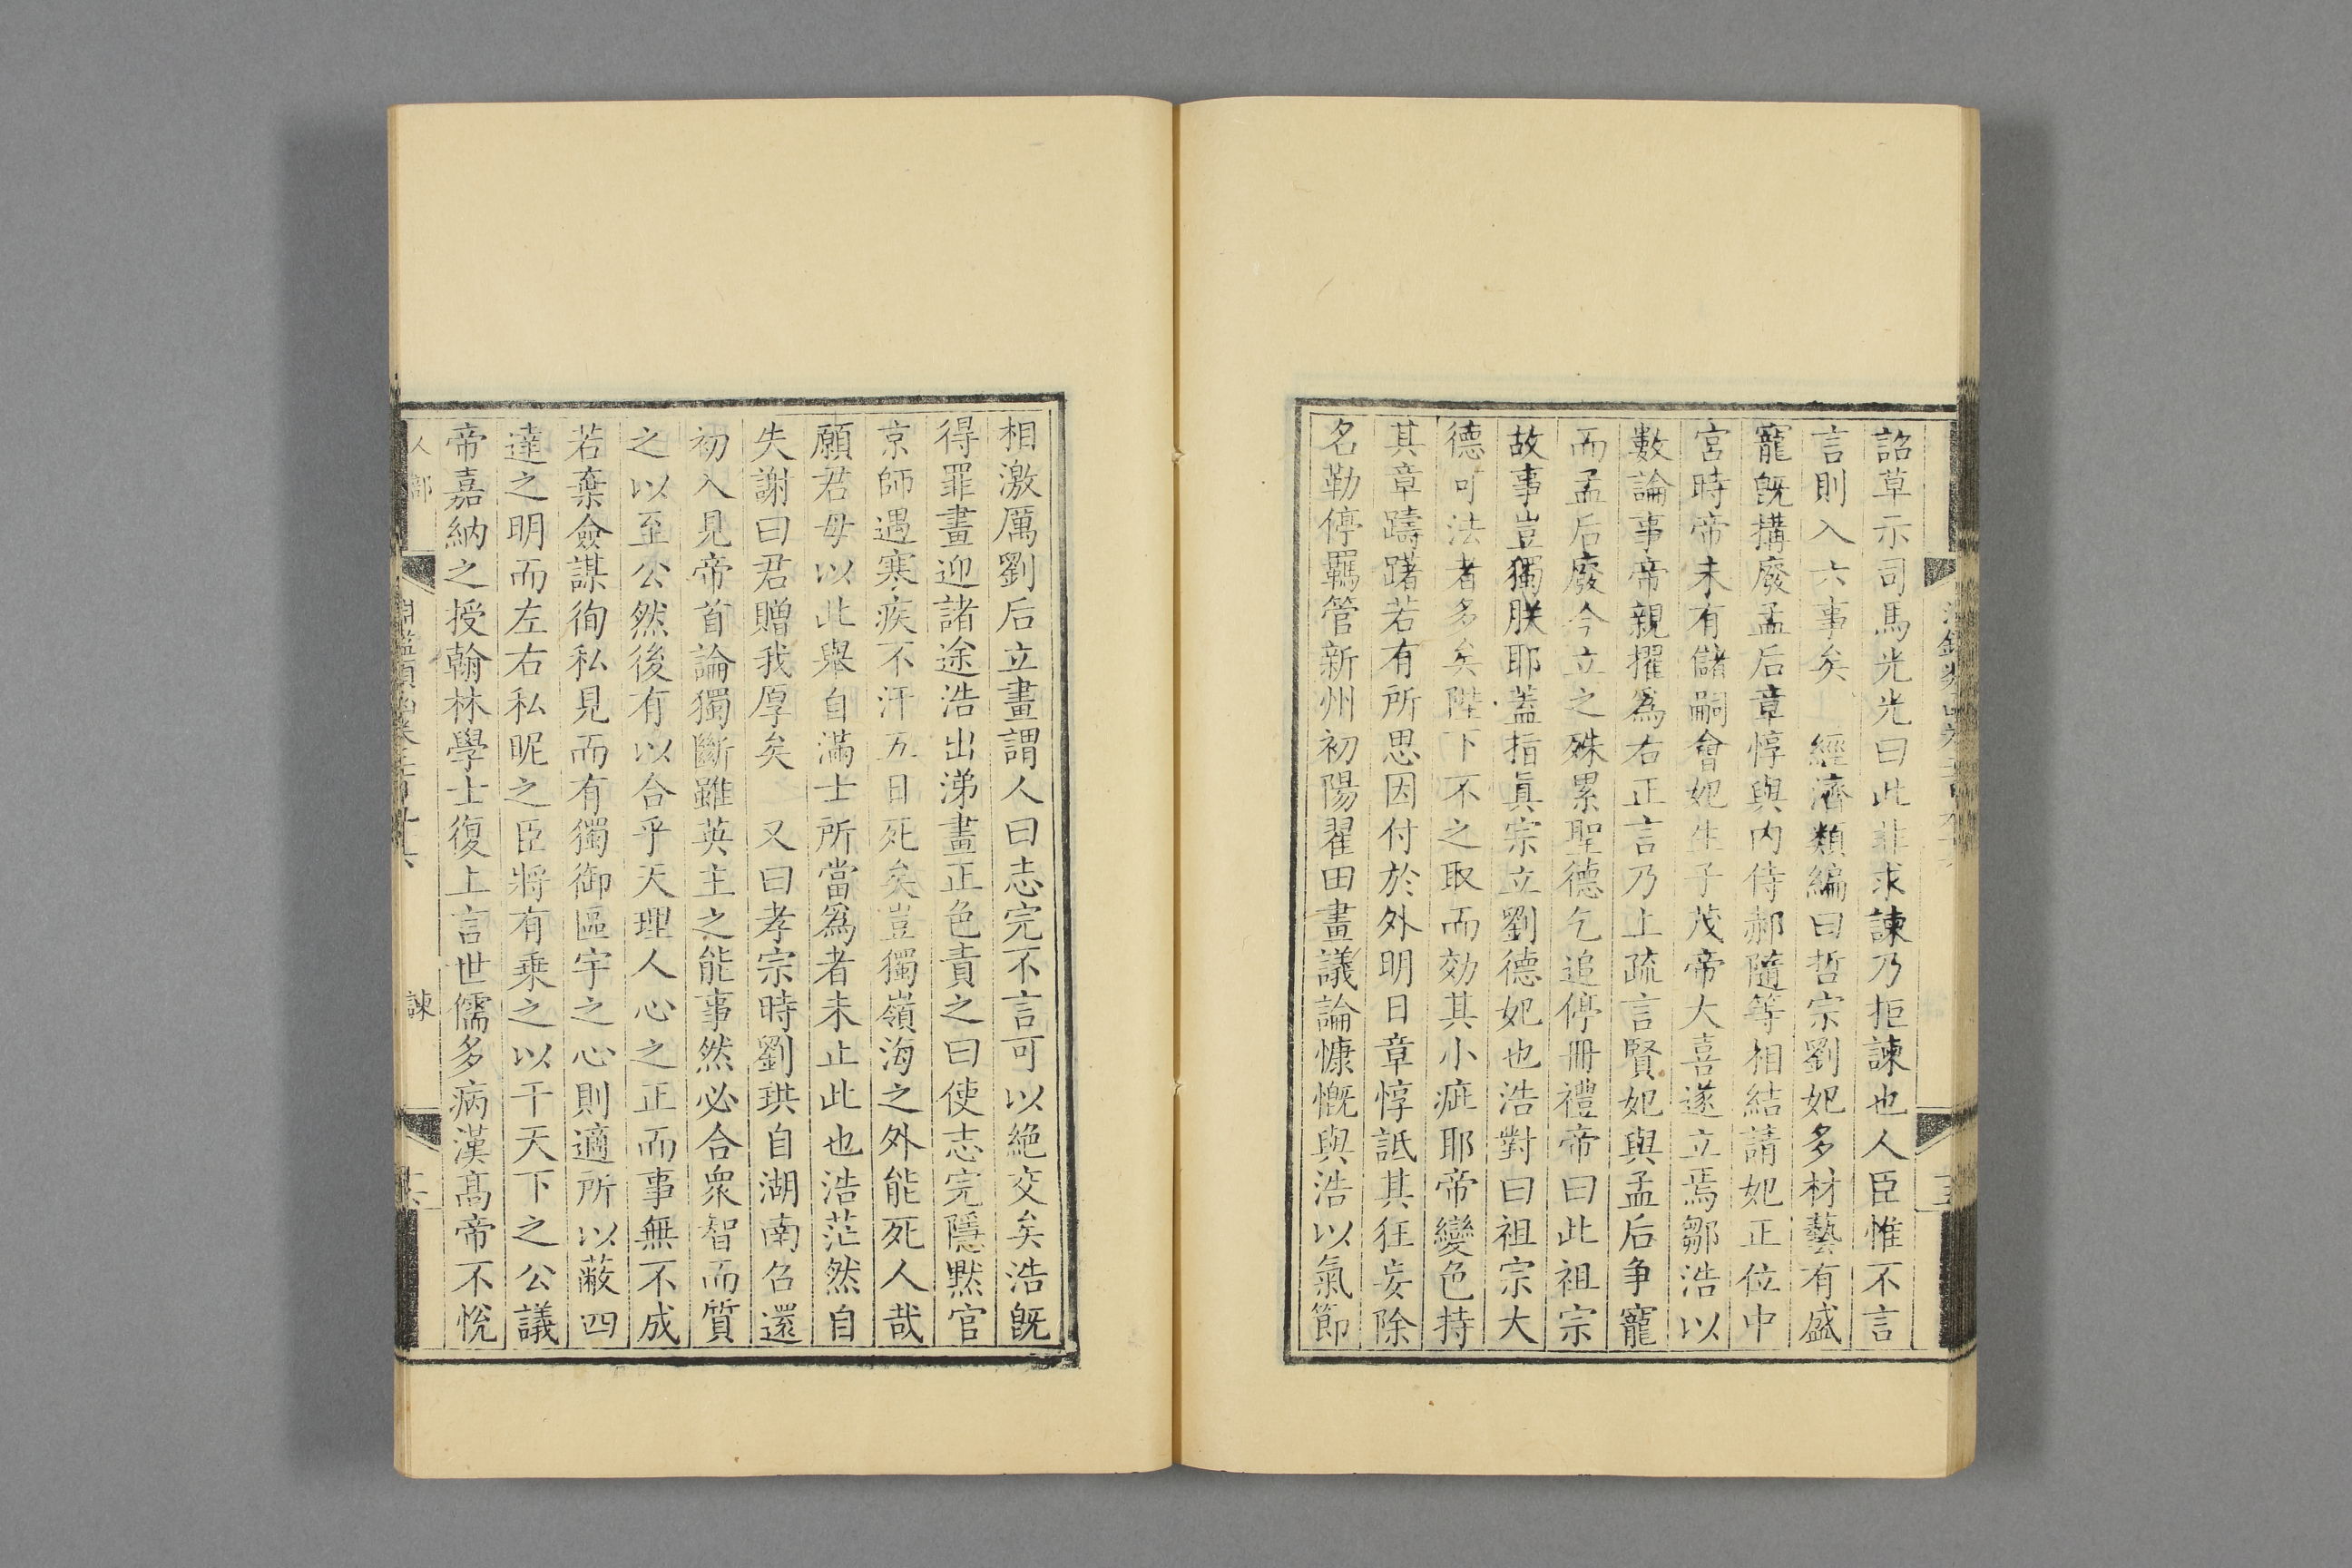 詔草示司馬光光曰此非求諫乃拒諫也人臣惟不言
言則入六事矣　經濟類編曰哲宗劉妃多材藝有盛
寵旣搆廢孟后章惇與内侍郝隨等相結請妃正位中
宮時帝未有儲嗣會妃生子茂帝大喜遂立焉鄒浩以
數論事帝親擢爲右正言乃上疏言賢妃與孟后争寵
而孟后廢今立之殊累聖德乞追停冊禮帝曰此祖宗
故事豈獨朕耶蓋指眞宗立劉德妃也浩對曰祖宗大
德可法者多矣陛下不之取而効其小疵耶帝變色持
其章躊躇若有所思因付於外明日章惇詆其狂妄除
名勒停羈管新州初陽翟田畫議論慷慨與浩以氣節
相激厲劉后立畫謂人曰志完不言可以絶交矣浩旣
得罪畫迎諸途浩出涕畫正色責之曰使志完隱默官
京師遇寒疾不汗五日死矣豈獨嶺海之外能死人哉
願君毋以此舉自滿士所當爲者未止此也浩茫然自
失謝曰君贈我厚矣　又曰孝宗時劉珙自湖南召還
初入見帝首論獨斷雖英主之能事然必合衆智而質
之以至公然後有以合乎天理人心之正而事無不成
若棄僉謀徇私見而有獨御區宇之心則適所以蔽四
達之明而左右私昵之臣將有乗之以干天下之公議
帝嘉納之授翰林學士復上言世儒多病漢髙帝不悅
人部
諫